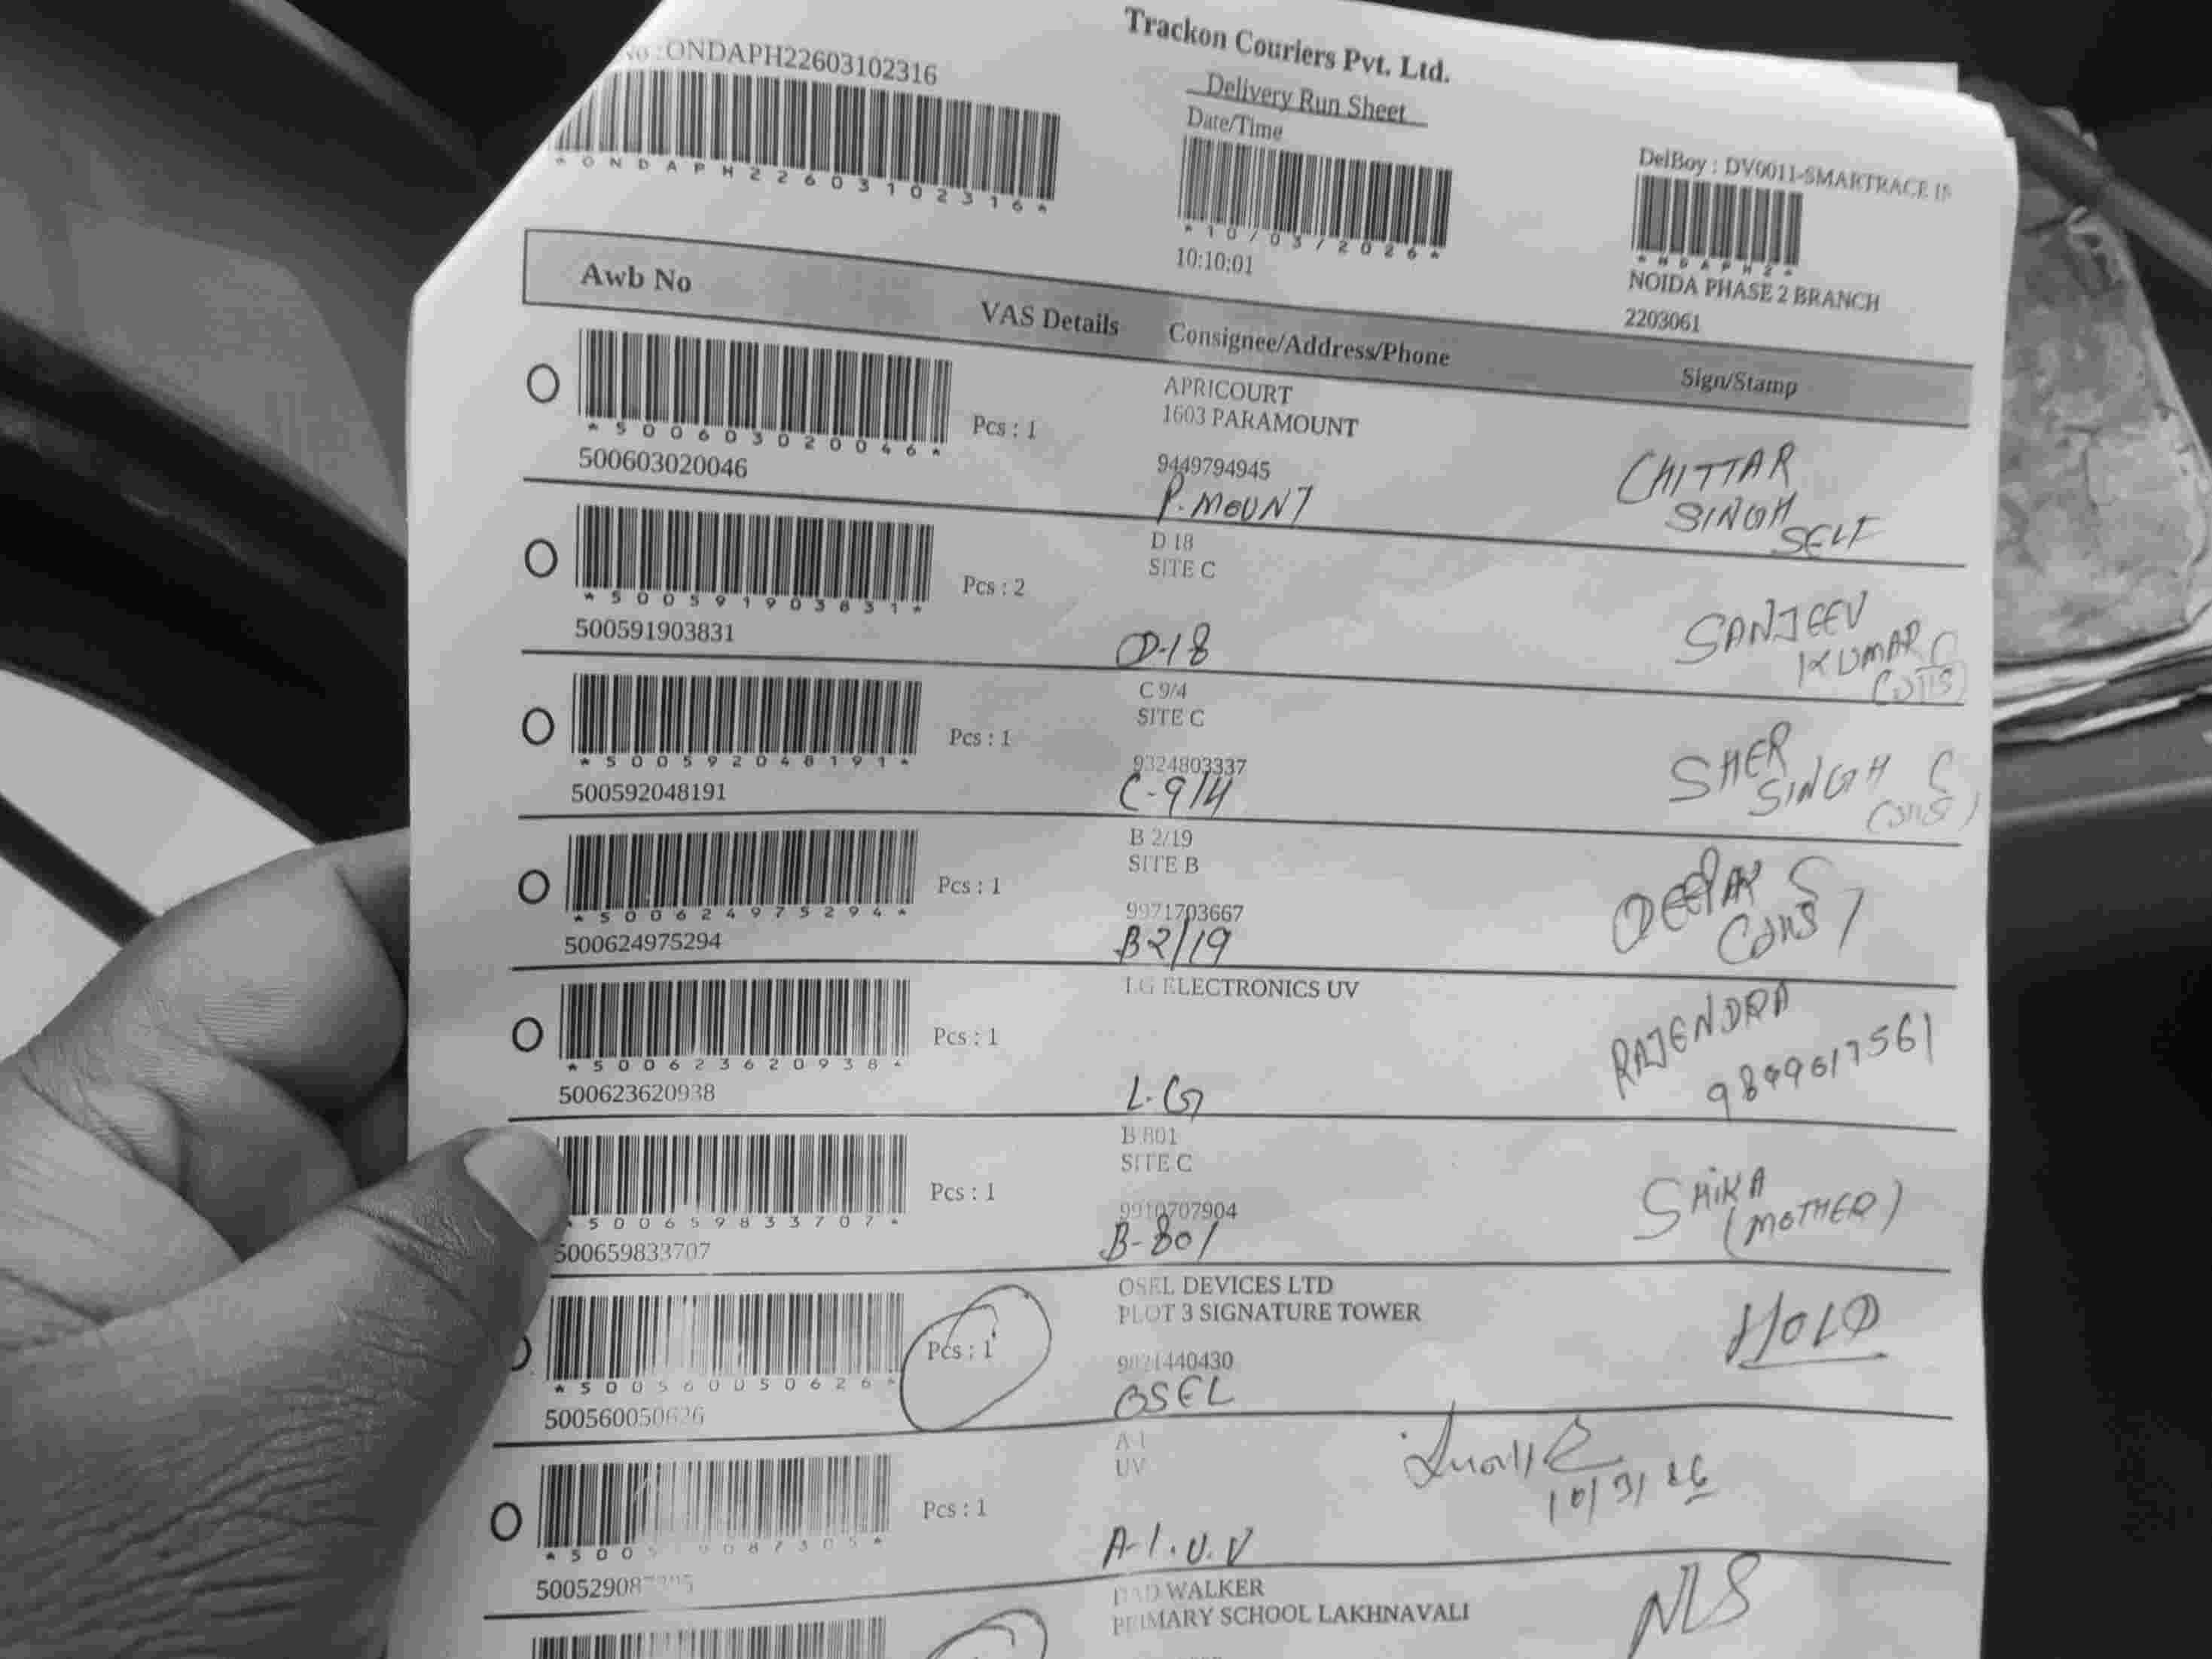 No : ONDAPH22603102316
*ONDAPH22603102316*
Trackon Couriers Pvt. Ltd.
Delivery Run Sheet
Date/Time
*10/03/2026*
10:10:01
DelBoy : DV0011-SMARTRACE
*NDAPH2*
NOIDA PHASE 2 BRANCH
2203061
Awb No VAS Details Consignee/Address/Phone Sign/Stamp
*500603020046*
500603020046
Pcs : 1
APRICOURT
1603 PARAMOUNT
9449794945
P.MOUNT
CHITTAR
SINGH
SELF
*500591903831*
500591903831
Pcs : 2
D 18
SITE C
D-18
SANJEEV
KUMAR
*500592048191*
500592048191
Pcs : 1
C 9/4
SITE C
9324803337
C-9/4
SHER
SINGH
*500624975294*
500624975294
Pcs : 1
B 2/19
SITE B
9971703667
B2/19
DEEPAK
*500623620938*
500623620938
Pcs : 1
LG ELECTRONICS UV
L.G
RAJENDRA
9899617561
*500659833707*
500659833707
Pcs : 1
B 801
SITE C
9910707904
B-801
SHIKA
(MOTHER)
*500560050626*
500560050626
Pcs : 1
OSEL DEVICES LTD
PLOT 3 SIGNATURE TOWER
9821440430
OSEL
HOLD
Pcs : 1
A 1
UV
A-1.U.V
10/3/26
DAD WALKER
PRIMARY SCHOOL LAKHNAVALI
NLS